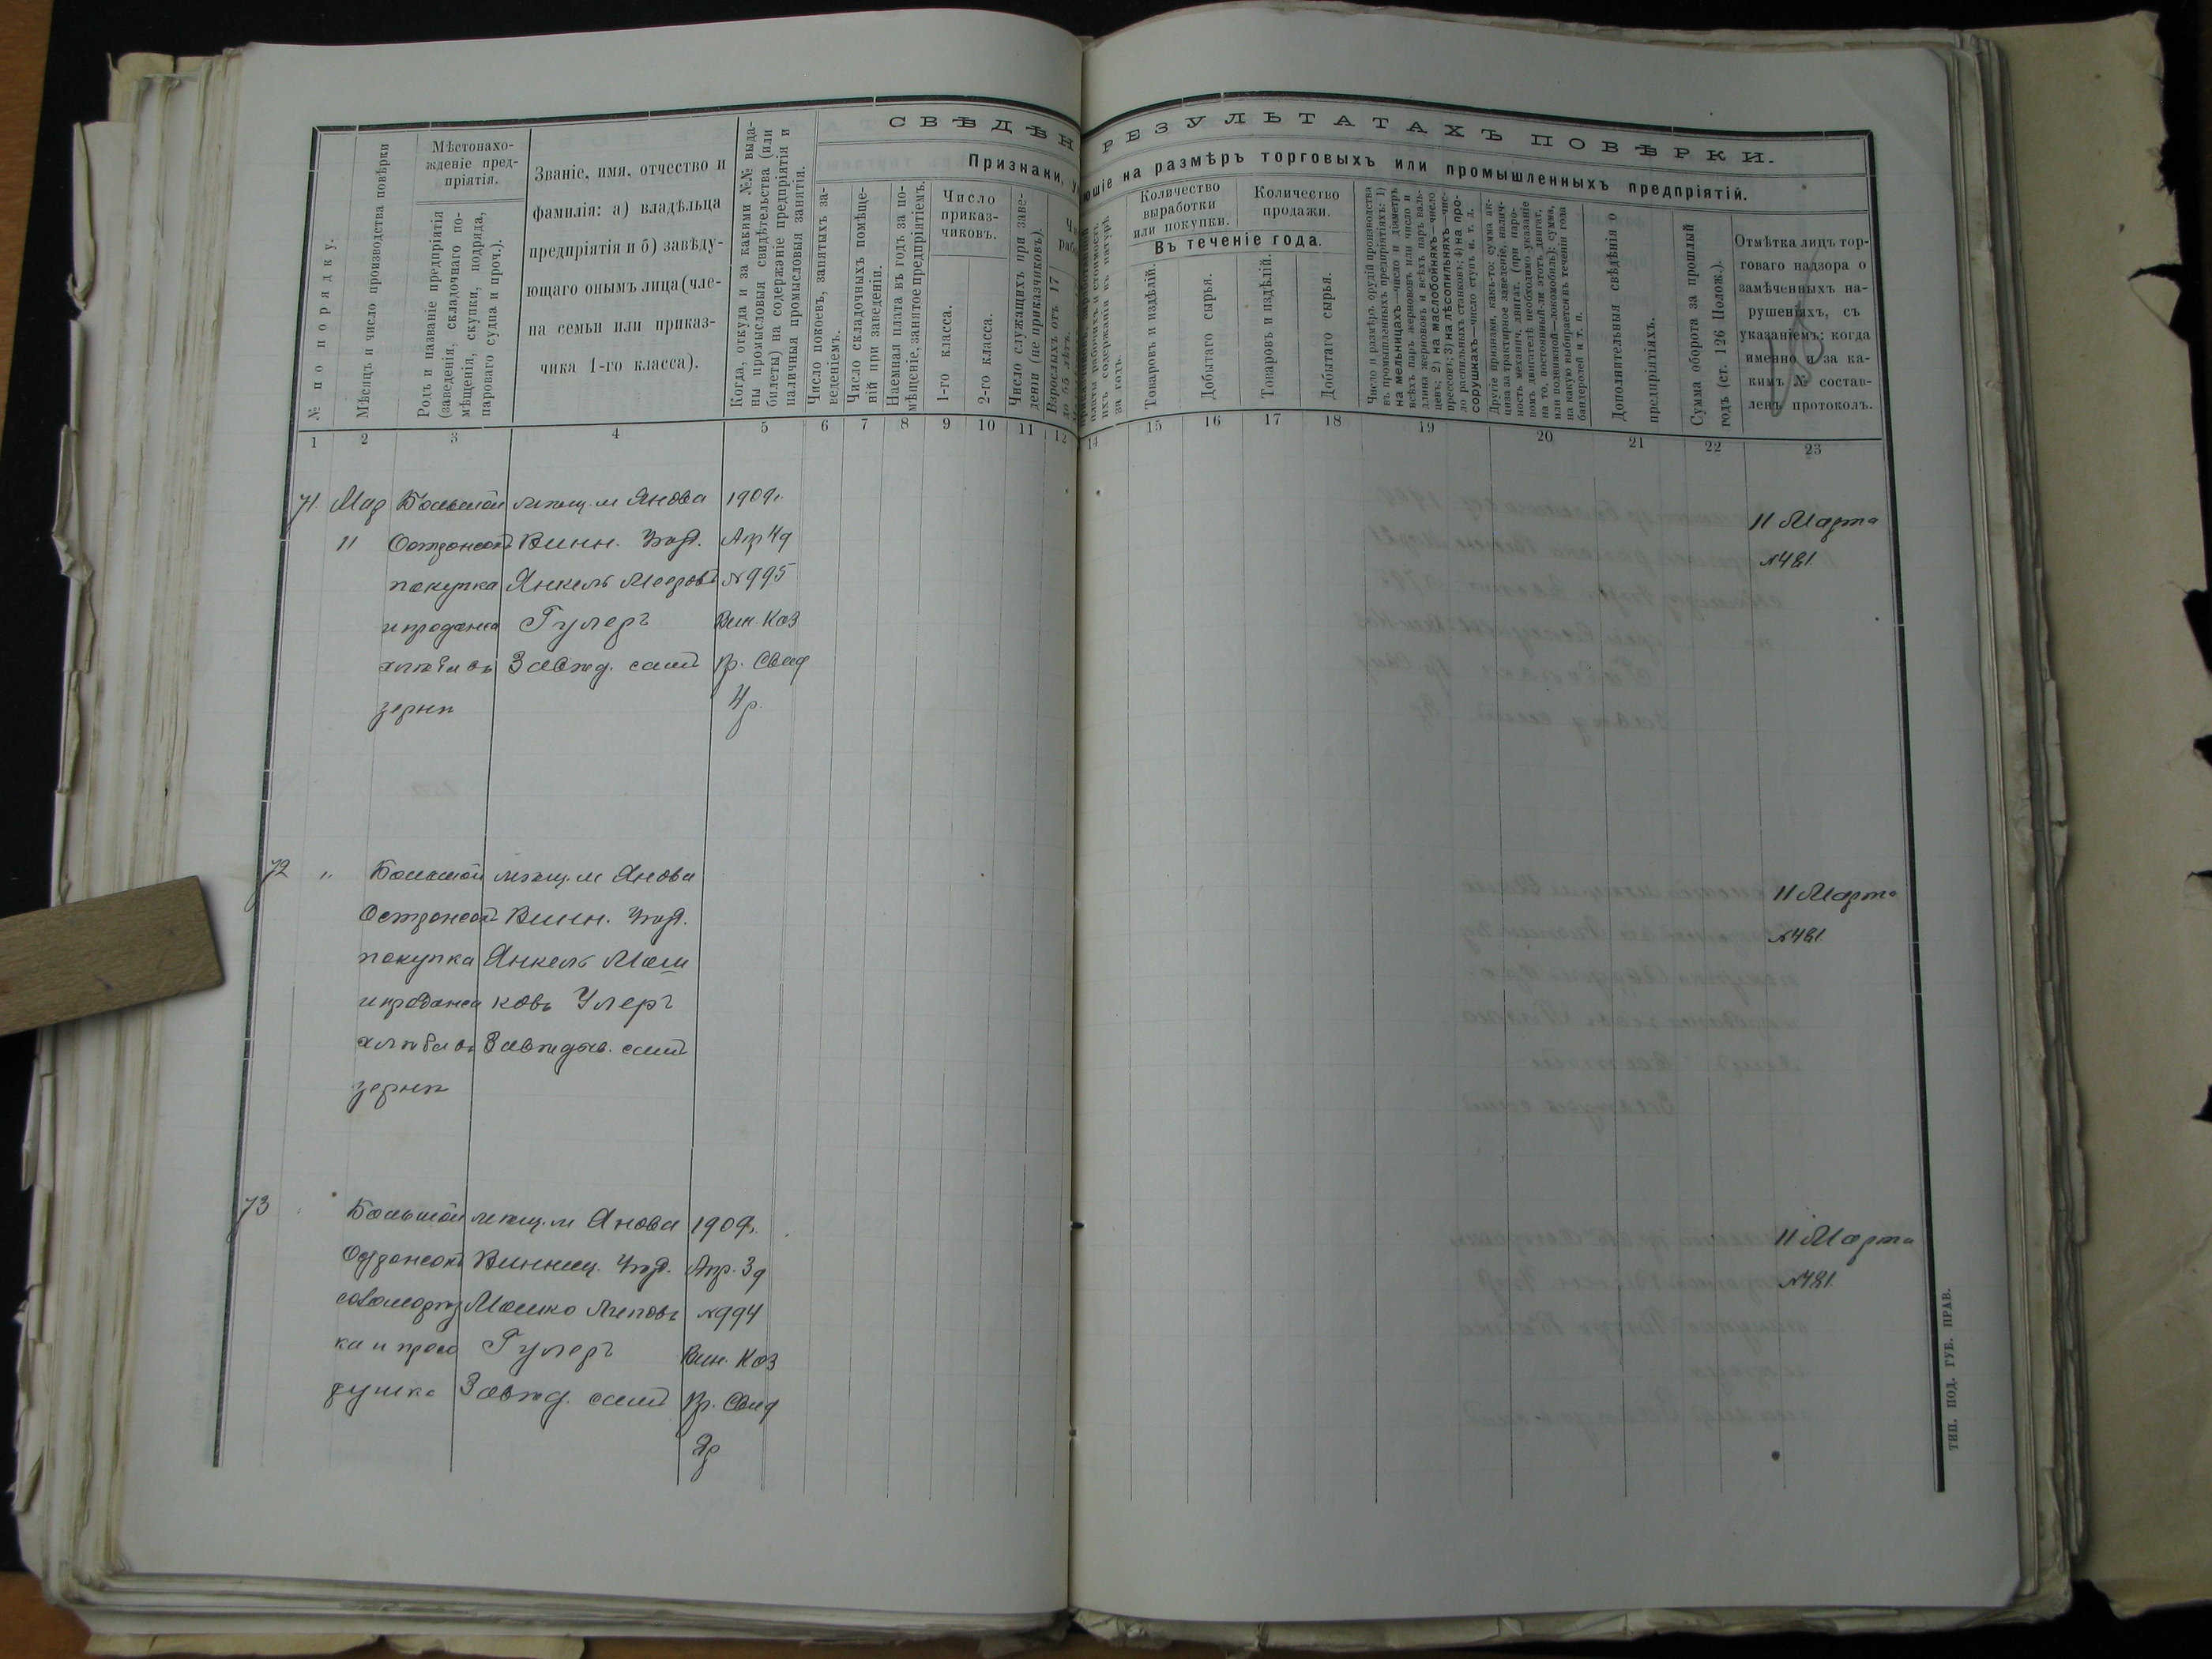 СВѢДѢН
РЕЗУЛЬТАТАХЪ ПОВѢРКИ.
Признаки, у
ющіе на размѣръ торговыхъ или промышленныхъ предпріятій.
№ по порядку.
Мѣсяцъ и число производства повѣрки
Мѣстонахо-
жденіе пред-
пріятія.
Родъ и названіе предпріятія
(заведенія, складочнаго по-
мѣщенія, скупки, подряда,
пароваго судна и проч.).
Званіе, имя, отчество и
фамилія: а) владѣльца
предпріятія и б) завѣду-
ющаго онымъ лица (чле-
на семьи или приказ-
чика 1-го класса).
Когда, откуда и за какими №№ выда-
ны промысловыя свидѣтельства (или
билеты) на содержаніе предпріятія и
на личныя промысловыя занятія.
Число покоевъ, занятыхъ за-
веденіемъ.
Число складочныхъ помѣще-
ній при заведеніи.
Наемная плата въ годъ за по-
мѣщеніе, занятое предпріятіемъ.
Число
приказ-
чиковъ.
1-го класса.
2-го класса.
Число служащихъ при заве-
деніи (не приказчиковъ).
Взрослыхъ отъ 17
до 65 лѣтъ.
ихъ содержанія въ натурѣ
за годъ.
Количество
выработки
или покупки.
Количество
продажи.
Въ теченіе года.
Товаровъ и издѣлій.
Добытаго сырья.
Товаровъ и издѣлій.
Добытаго сырья.
Число и размѣръ орудій производства
въ промышленныхъ предпріятіяхъ: 1)
на мельницахъ—число и діаметръ
всѣхъ паръ жернововъ или число и
длина жернововъ и всѣхъ паръ валь-
цевъ; 2) на маслобойняхъ—число
прессовъ; 3) на лѣсопильняхъ—чис-
ло распильныхъ станковъ; 4) на про-
сорушкахъ—число ступъ и т. д.
Другіе признаки, какъ-то: сумма ак-
циза за трактирное заведеніе, налич-
ность механич. двигат. (при паро-
вомъ двигателѣ необходимо указаніе
на то, постоянный-ли этотъ двигат.
или подвижной—локомобиль); сумма,
на какую выбирается въ теченіи года
бандеролей и т. п.
Дополнительныя свѣдѣнія о
предпріятіяхъ.
Сумма оборота за прошлый
годъ (ст. 126 Полож.).
Отмѣтка лицъ тор-
говаго надзора о
замѣченныхъ на-
рушеніяхъ, съ
указаніемъ: когда
именно и за ка-
кимъ № состав-
ленъ протоколъ.
1 2 3 4 5 6 7 8 9 10 11 12 14 15 16 17 18 19 20 21 22 23
71. Мар Большой мѣщ. м Янова 1909г. 11 Марта
11 Винн. уѣзд. Апр 4д №481.
покупка Янкель Мееровъ №995
и продажа Гулеръ Вин. Каз
хлѣба въ Завѣд. самъ Пр. Свид
зернѣ 4р.
72 " Большой мѣщ. м Янова 11 Марта
Винн. уѣзд. №481.
покупка Янкель Мош
и продажа ковъ Улеръ
хлѣба въ Завѣдыв. самъ
зернѣ
73 Большой мѣщ. м Янова 1909г. 11 Марта
Винниц. уѣзд. Апр. 3д №481.
Мошко Липовъ №994
Гулеръ Вин. Каз
Завѣд. самъ Пр. Свид
ТИП. ПОД. ГУБ. ПРАВ.